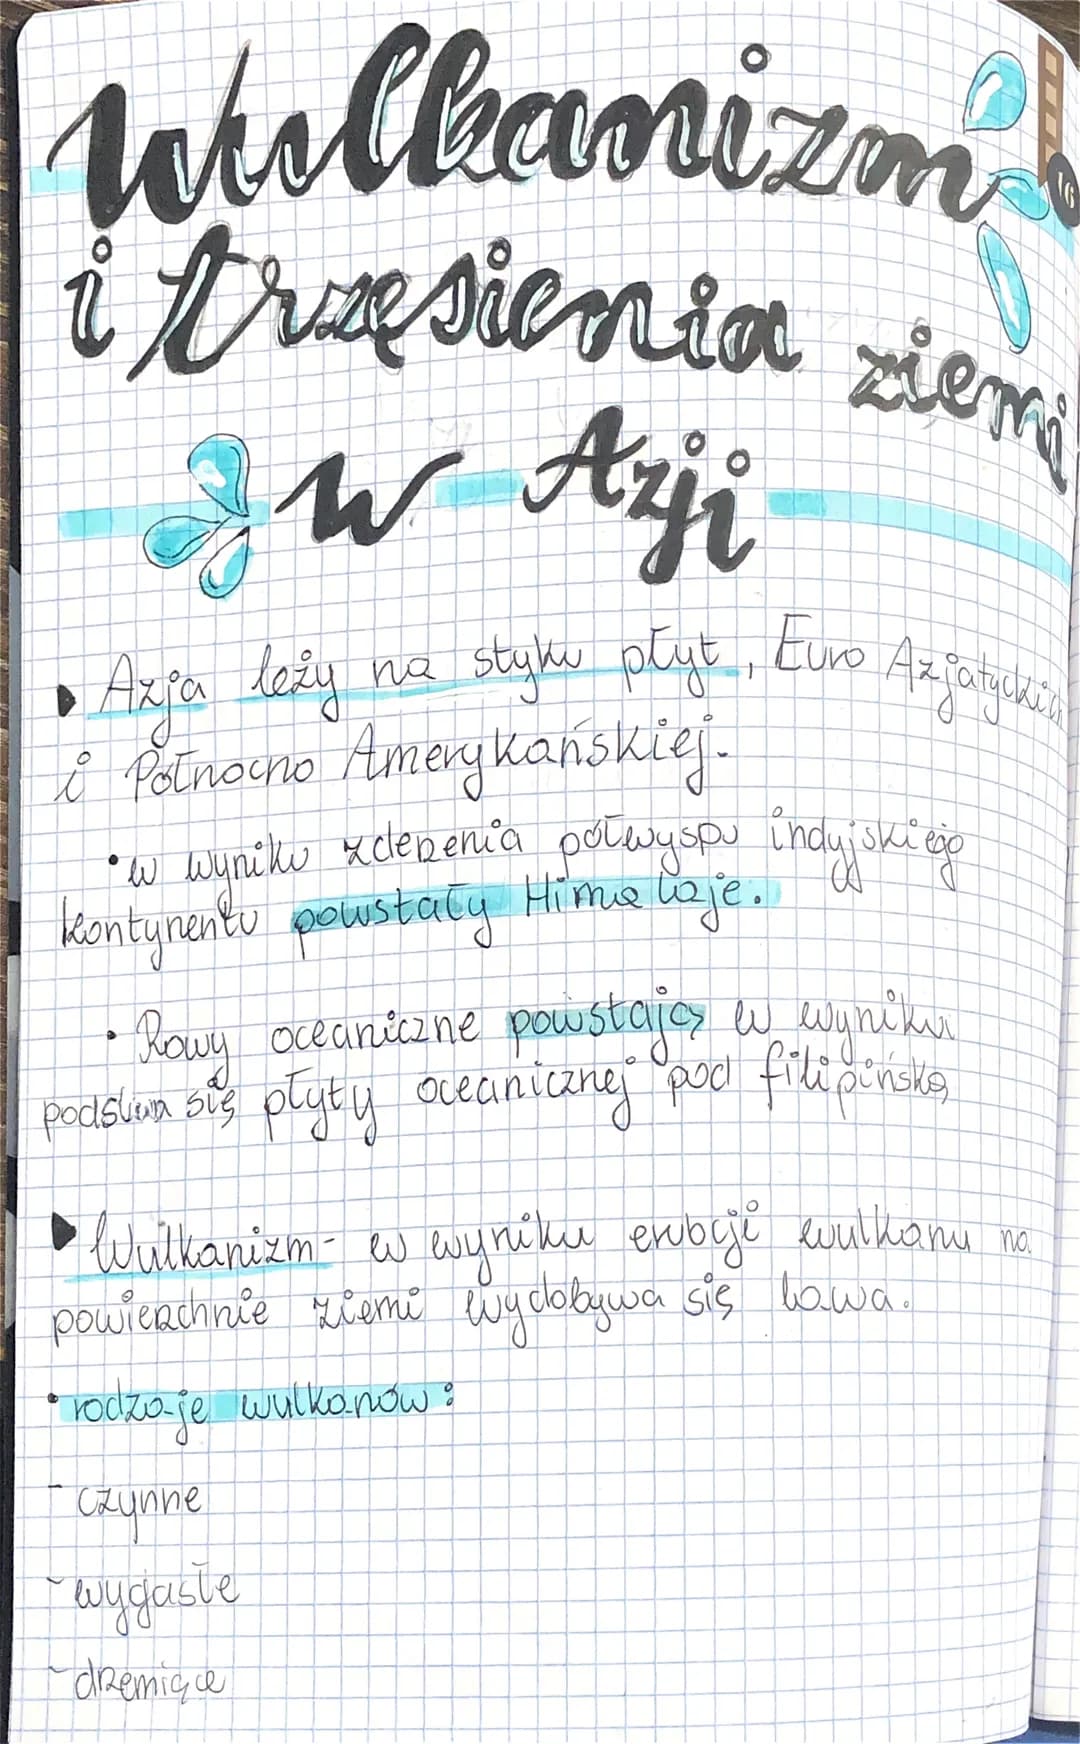 Wulkanizm
i trzęsienia ziemi
w Azji
Azja leży na styku płyt, Euro Azjatyckich
i Północno Amerykańskiej.
• w wyniku zderzenia półwyspu indyjskiego
kontynentu powstały Himalaje.
• Rowy oceaniczne powstają w wyniku
się płyty oceanicznej pod filipińską
Wulkanizm - w wyniku erubcji wulkanu na
powierzchnie ziemi wydobywa się lawa.
• rodzaje wulkanów:
- czynne
- wygasłe
- drzemiące
16